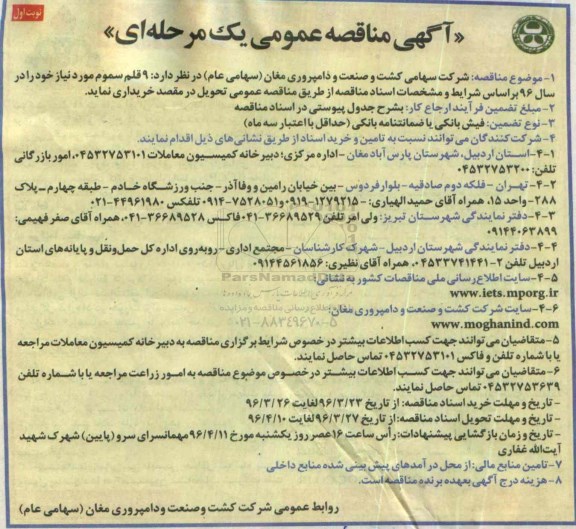 نوبت اول
«آگهی مناقصه عمومی یک مرحله‌ای»
۱- موضوع مناقصه: شرکت سهامی کشت و صنعت و دامپروری مغان (سهامی عام) در نظر دارد: ۹ قلم سموم مورد نیاز خود را در
سال ۹۶ براساس شرایط و مشخصات اسناد مناقصه از طریق مناقصه عمومی تحویل در مقصد خریداری نماید.
۲- مبلغ تضمین فرآیند ارجاع کار: بشرح جدول پیوستی در اسناد مناقصه
۳- نوع تضمین: فیش بانکی یا ضمانتنامه بانکی (حداقل با اعتبار سه ماه)
۴- شرکت‌کنندگان می‌توانند نسبت به تامین و خرید اسناد از طریق نشانی‌های ذیل اقدام نمایند.
۴-۱- استان اردبیل، شهرستان پارس‌آباد مغان - اداره مرکزی؛ دبیرخانه کمیسیون معاملات ۰۴۵۳۲۷۵۳۱۰۱، امور بازرگانی
تلفن: ۰۴۵۳۲۷۵۳۲۰۰
۴-۲- تهران - فلکه دوم صادقیه - بلوار فردوس - بین خیابان رامین و وفاآذر - جنب ورزشگاه خادم - طبقه چهارم - پلاک
۲۸۸- واحد ۱۵، همراه آقای حمید الهیاری: ۱۲۷۹۲۱۵-۰۹۱۹ و ۷۵۲۸۰۵۱-۰۹۱۴ تلفکس ۴۴۹۶۱۹۸۰-۰۲۱
۴-۳- دفتر نمایندگی شهرستان تبریز: ولی امر تلفن ۳۶۶۸۹۵۲۹-۰۴۱ فاکس ۳۶۶۸۹۵۲۸-۰۴۱، همراه آقای صفر فهیمی:
۰۹۱۴۴۰۶۳۸۹۹
۴-۴- دفتر نمایندگی شهرستان اردبیل - شهرک کارشناسان - مجتمع اداری - روبه‌روی اداره کل حمل‌ونقل و پایانه‌های استان
اردبیل تلفن ۲-۰۴۵۳۳۷۴۱۴۴۱، همراه آقای نظیری: ۰۹۱۴۴۵۶۱۸۵۶
ParsNamadData
۴-۵- سایت اطلاع‌رسانی ملی مناقصات کشور به نشانی:
www.iets.mporg.ir
۴-۶- سایت شرکت کشت و صنعت و دامپروری مغان:
۰۲۱-۸۸۳۴۹۶۷۰-۵
www.moghanind.com
۵- متقاضیان می‌توانند جهت کسب اطلاعات بیشتر در خصوص شرایط برگزاری مناقصه به دبیرخانه کمیسیون معاملات مراجعه
یا با شماره تلفن و فاکس ۰۴۵۳۲۷۵۳۱۰۱ تماس حاصل نمایند.
۶- متقاضیان می توانند جهت کسب اطلاعات بیشتر در خصوص موضوع مناقصه به امور زراعت مراجعه یا با شماره تلفن
۰۴۵۳۲۷۵۳۶۳۹ تماس حاصل نمایند.
- تاریخ و مهلت خرید اسناد مناقصه: از تاریخ ۹۶/۳/۲۳ لغایت ۹۶/۳/۲۶
- تاریخ و مهلت تحویل اسناد مناقصه: از تاریخ ۹۶/۳/۲۷ لغایت ۹۶/۴/۱۰
- تاریخ و زمان بازگشایی پیشنهادات: رأس ساعت ۱۶ عصر روز یکشنبه مورخ ۹۶/۴/۱۱ مهمانسرای سرو (پایین) شهرک شهید
آیت‌الله غفاری
۷- تامین منابع مالی: از محل درآمدهای پیش بینی شده منابع داخلی
۸- هزینه درج آگهی بعهده برنده مناقصه است.
روابط عمومی شرکت کشت و صنعت و دامپروری مغان (سهامی عام)